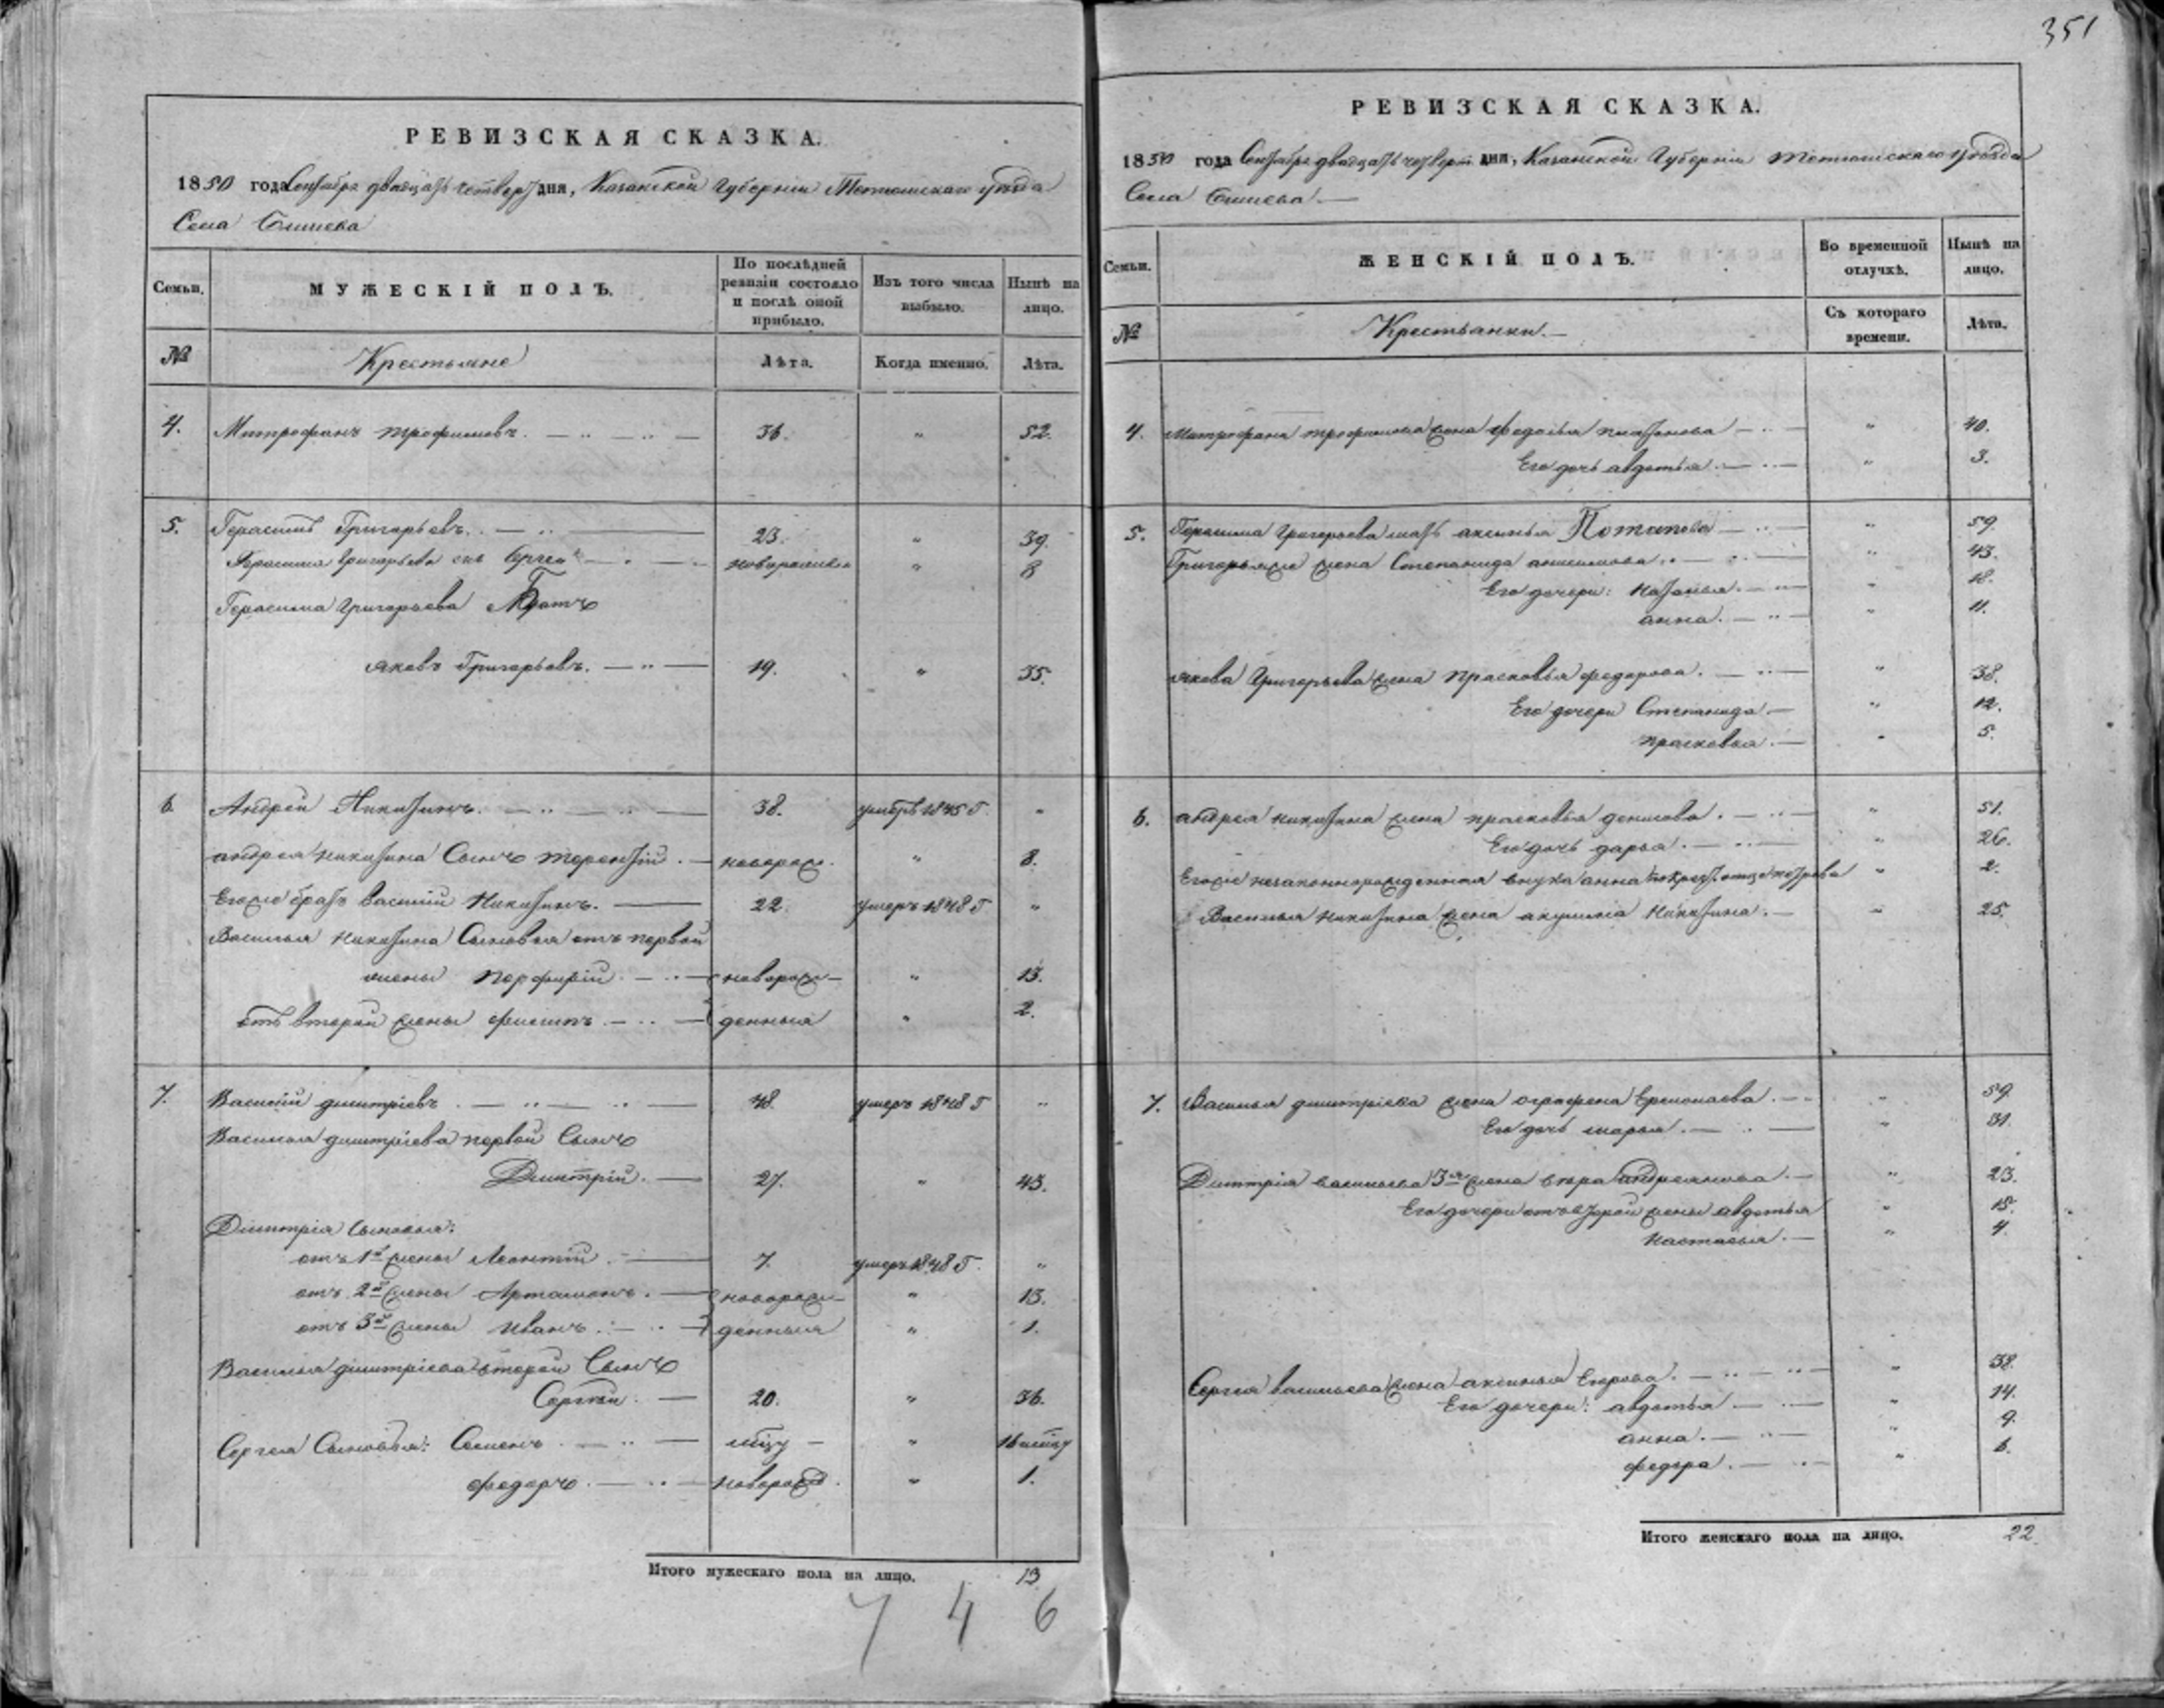 351
РЕВИЗСКАЯ СКАЗКА.
1850 года Сентября двадцать четверт дня, Казанской Губернии Тетюшскаго уезда
Села
Семьи.
МУЖЕСКІЙ ПОЛЪ.
По послѣдней ревизіи состояло и послѣ оной прибыло.
Изъ того числа выбыло.
Нынѣ на лицо.
№
Крестьяне
Лѣта.
Когда именно.
Лѣта.
4. Митрофанъ Трофимовъ. 36. " 52.
5. Герасимъ Григорьевъ. 23. " 39.
Герасима Григорьева снъ Сергей 8
Герасима Григорьева Братъ
Яковъ Григорьевъ. 19. " 35.
6. Андрей Никитинъ. 38. умеръ 1845 г. "
Андрея Никитина Сынъ Терентій. новорож. " 8.
Его же братъ Василій Никитинъ. 22. умеръ 1848 г "
Василья Никитина Сыновья отъ первой
жены Порфирій. новорож- " 13.
отъ второй жены Филипъ. денныя " 2.
7. Василий Димитріевъ. 48. умеръ 1848 г "
Василья Димитріева первой Сынъ
Димитрій. 27. " 43.
Димитрія Сыновья:
отъ 1й жены Леонтій. 7. умеръ 1848 г. "
отъ 2й жены Артамонъ. новорож- " 13.
отъ 3й жены Иванъ. денныя " 1.
Василья Димитріева второй Сынъ
Сергѣй. 20. " 36.
Сергея Сыновья: Семенъ " 16
Федоръ. новорожд. " 1.
Итого мужескаго пола на лицо. 13
7 4 6
РЕВИЗСКАЯ СКАЗКА.
1850 года Сентября двадцать четверт дня, Казанской Губерніи Тетюшскаго уезда
Села
Семьи.
ЖЕНСКІЙ ПОЛЪ.
Во временной отлучкѣ.
Нынѣ на лицо.
№
Крестьянки.
Съ котораго времени.
Лѣта.
4. Митрофана Трофимова жена Федосья Платонова " 40.
Его дочь Авдотья. " 3.
5. Герасима Григорьева мать Аксинья Потапова " 59.
жена Степанида " 43.
Его дочери: Наталья. " 18.
Анна. " 11.
Якова Григорьева жена Прасковья Федорова. " 38.
Его дочери Степанида " 12.
Прасковья. " 5.
6. Андрея Никитина жена Прасковья Денисова. " 51.
Его дочь Дарья. " 26.
Его же незаконнорожденная внука Анна по крест. отце Петрова " 2.
Василья Никитина жена Акулина Никитина. " 25.
7. Василья Димитріева жена Аграфена Ермолаева. " 59.
Его дочь Марья. " 31.
Димитрія Васильева 3я жена Вера Андреянова. " 23.
Его дочери отъ второй жены Авдотья " 15.
Настасья. " 4.
Сергея Васильева жена Аксинья Егорова. " 38.
Его дочери: Авдотья " 14.
Анна. " 9.
Федора. " 6.
Итого женскаго пола на лицо. 22